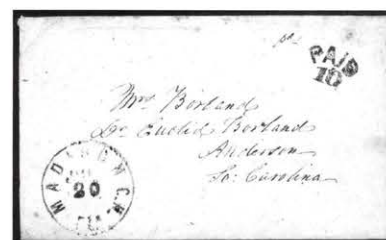 PAID
10
Mrs Borland
Dr Euclid Borland
Anderson
So: Carolina
MADISON C.H.
20